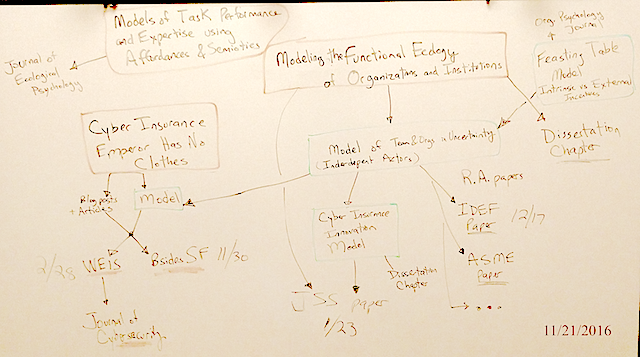 Models of Task Performance
and Expertise using
Affordances & Semiotics
Journal of
Ecological
Psychology
Modeling the Functional Ecology
of Organizations and Institutions
Org. Psychology
Journal
Feasting Table
Model
Intrinsic vs External
Incentives
Dissertation
Chapter
Cyber Insurance
Emperor Has No
Clothes
Blog posts
+ Articles
Model
Model of Team & Orgs in Uncertainty
(Interdependent Actors)
R.A. papers
IDEF
Paper
12/17
ASME
Paper
Cyber Insurance
Innovation
Model
Dissertation
Chapter
2/28
WEIS
Bsides SF 11/30
Journal of
Cybersecurity
JSS paper
1/23
11/21/2016